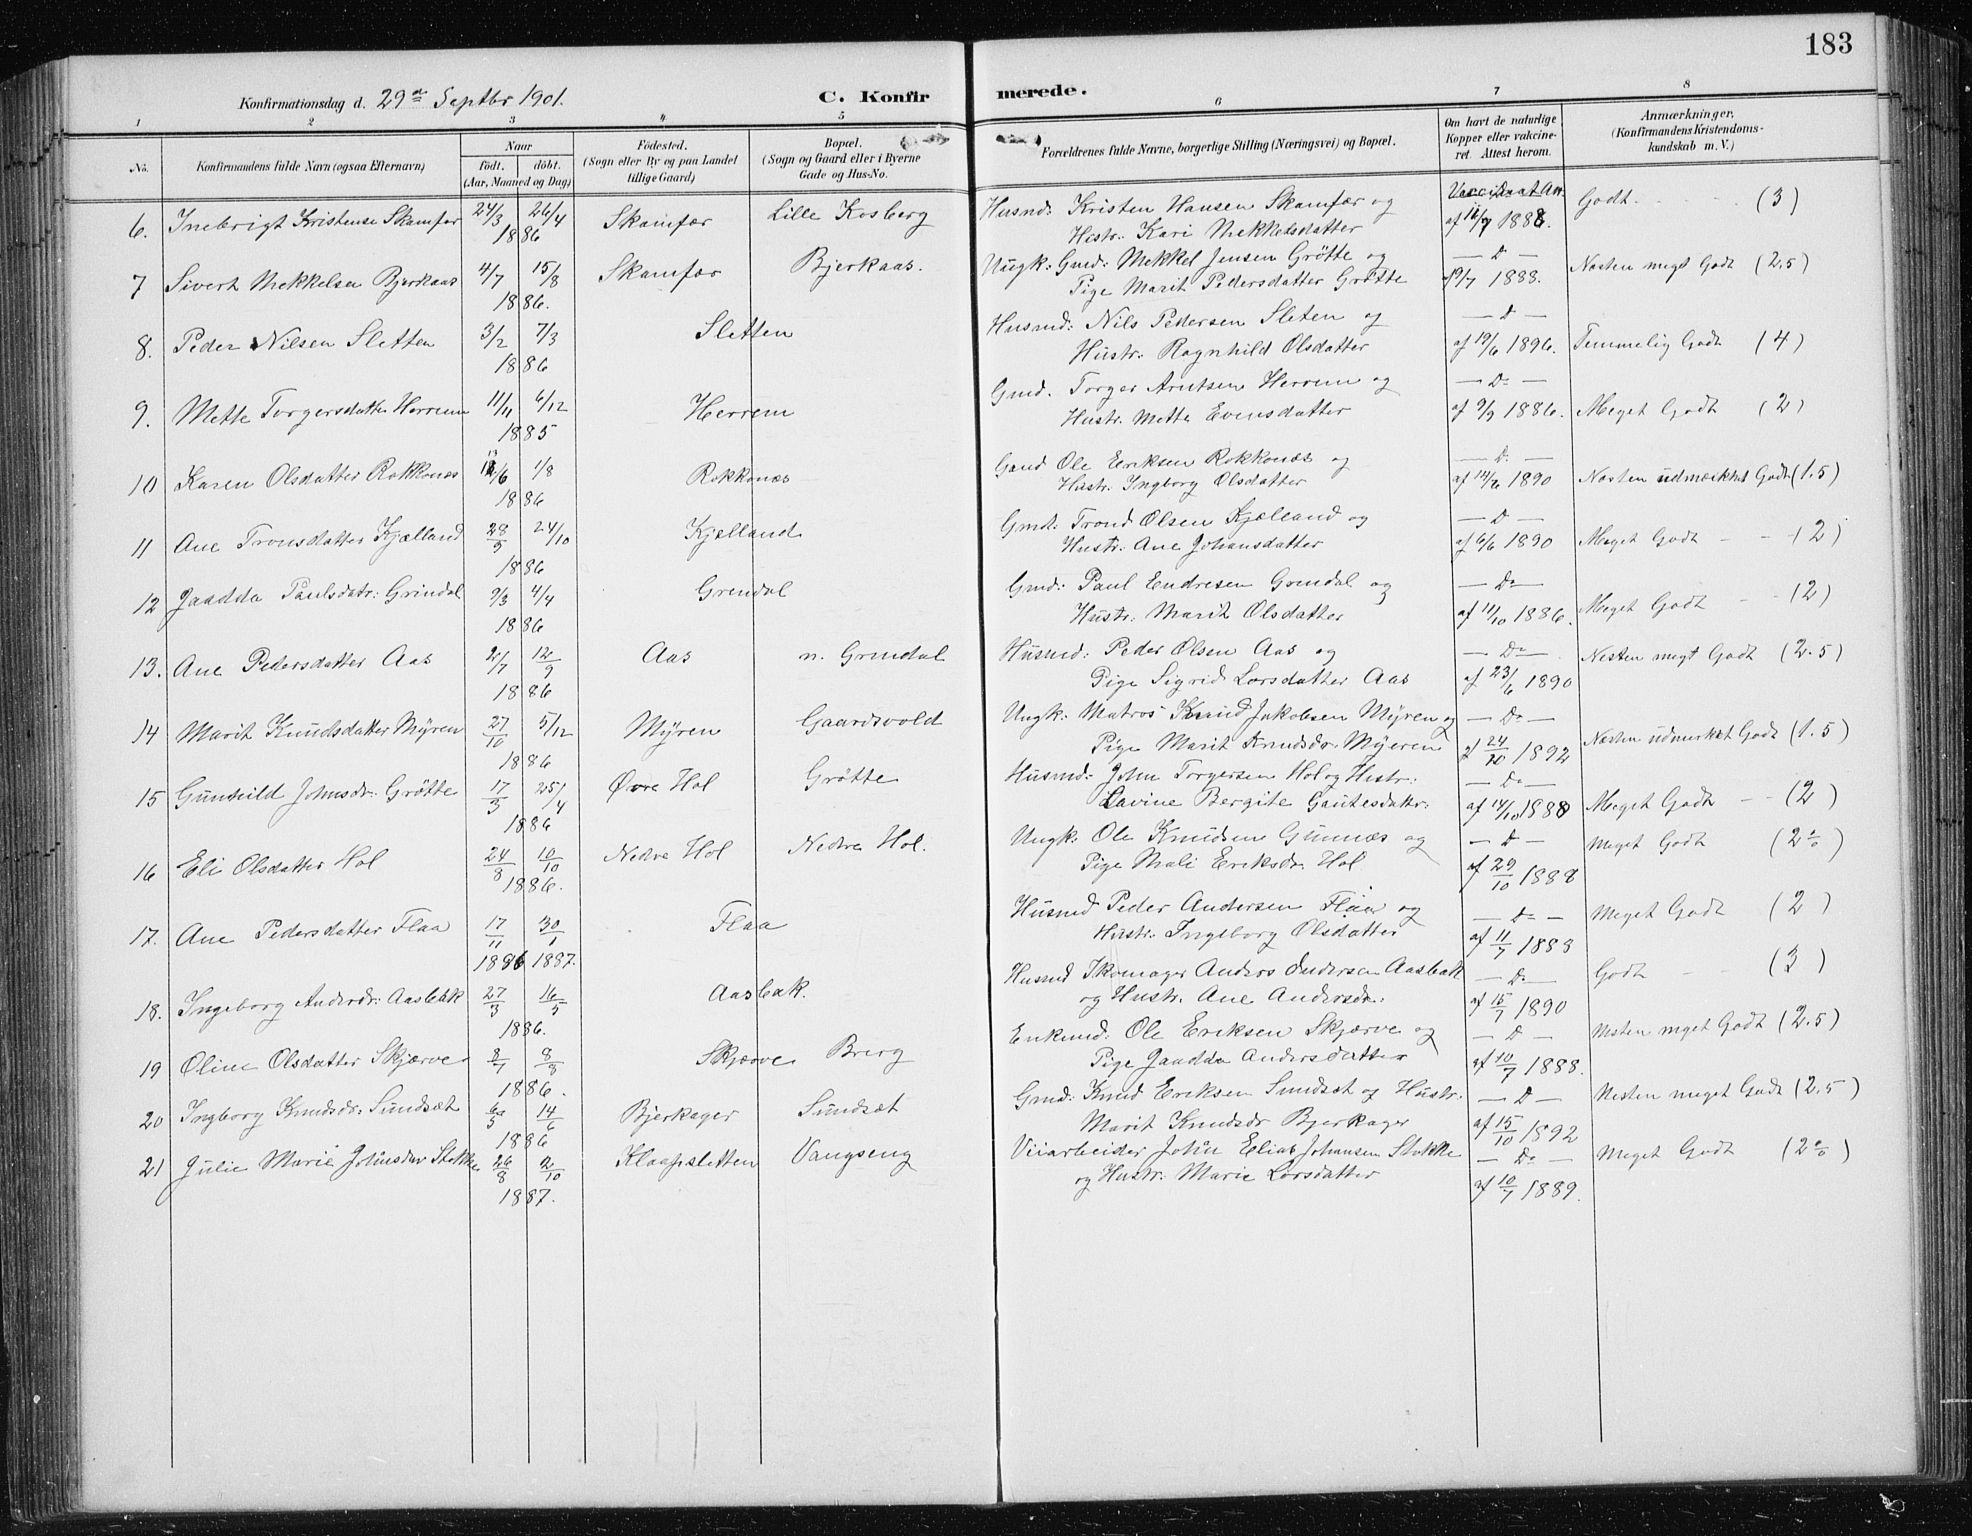 183
Konfirmationsdag d. 29de Septbr 1901. C. Konfirmerede.
1 2 3 4 5 6 7 8
No. Konfirmandens fulde Navn (ogsaa Efternavn) Naar født, døbt. (Aar, Maaned og Dag) Fødested. (Sogn eller By og paa Landet tillige Gaard) Bopæl. (Sogn og Gaard eller i Byerne Gade og Hus-No. Forældrenes fulde Navne, borgerlige Stilling (Næringsvei) og Bopæl. Om havt de naturlige Kopper eller vakcineret. Attest herom. Anmærkninger. (Konfirmandens Kristendomskundskab m. V.)
6. Inebrigt Kristensen Skamfær 24/3 26/4 Skamfær Lille Kosberg Husmd: Kristen Hansen Skamfær og Godt. (3)
1886 Hustr: Kari Mekkelsdatter
7 Sivert Mekkelsen Bjerkaas 4/7 15/8 Skamfær Bjerkaas. Ungk: Gmd: Mekkel Jensen Grötte og — D — Næsten meget Godt (2.5)
1886. Pige Marit Pedersdatter Grötte 19/7 1888.
8. Peder Nilsen Sletten 3/2 7/3 Sletten Husmd: Nils Pedersen Sleten og — D —
1886 Hustr: Ragnhild Olsdatter af 19/6 1896. Temmelig Godt (4)
9. Mette Torgersdatter Herrem 11/11 6/12 Herrem Gmd. Torger Arntsen Herrem og — Do —
1885 Hustr. Mette Evensdatter af 9/9 1886. Meget Godt (2)
10 Karen Olsdatter Rokkonæs /6 1/8 Rokkonæs Gmd Ole Eriksen Rokkonæs og — D. —
1886 Hustr. Ingborg Olsdatter af 14/6 1890 Næsten udmærket Godt (1.5)
11 Ane Tronsdatter Kjælland 28/9 24/10 Kjælland Gmd: Trond Olsen Kjælland og — D —
1886 Hustr: Ane Johansdatter af 6/6 1890 Meget Godt - - (2)
12 Jaadda Paulsdatr: Grindal 9/3 4/4 Grendal Gmd: Paul Endresen Grendal og — Do —
1886 Hustr: Marit Olsdatter af 11/10 1886. Meget Godt - - (2)
13. Ane Pedersdatter Aas 2/7 12/9 Aas n. Grendal Husmd: Peder Olsen Aas og — Do — Næsten megt Godt (2.5)
1886 Pige Sigrid Larsdatter Aas af 23/6 1890
14 Marit Knudsdatter Myren 27/10 5/12 Myren Gaardsvold Ungk: Matros Knud Jakobsen Myren og — Do —
1886 Pige Marit Knudsdr. Myeren af 24/10 1892 Næsten udmerket Godt (1.5)
15 Gunhild Johnsdr: Grötte 17/3 25/4 Øvre Hol Grötte Husmd: John Torgersen Hol og Hustr: — Do —
1886 Lavine Bergite Gautesdattr: af 14/10 1888 Meget Godt - - (2)
16 Eli Olsdatter Hol 24/8 10/10 Nedre Hol Nedre Hol. Ungk: Ole Knudsen Gunnæs og — D — Meget Godt
1886. Pige Mali Eriksdr: Hol af 29/10 1888
17. Ane Pedersdatter Flaa 17/11 30/1 Flaa Husmd Peder Andersen Flaa og — Do — Meget Godt (2)
1886 1887. Hustr: Ingeborg Olsdatter af 11/7 1888
18. Ingeborg Andersdr: Aasbak 27/3 16/5 Aasbak. Husmd Skomager Anders Andersen Aasbak — Do — Godt (3)
1886. og Hustr. Ane Andersdr: af 15/7 1890
19 Oline Olsdatter Skjærve 2/7 8/8 Skjærve Brerg Enkemd: Ole Eriksen Skjærve og — D — Næsten meget Godt (2.5)
1886. Pige Jaadda Andersdatter af 10/7 1888.
20 Ingborg Knudsdr: Sundsæt 6/5 14/6 Bjerkager Sundsæt Gmd: Knud Eriksen Sundset og Hustr: — D — Næsten meget Godt (2.5)
1886 Marit Knudsdr Bjerkager af 15/10 1892
21 Julie Marie Johnsdtr Stokke 26/8 2/10 Klaapsletten Vangseng Veiarbeider John Elias Johansen Stokke — Do — Meget Godt
1887. og Hustr: Marie Larsdatter af 10/7 1889.